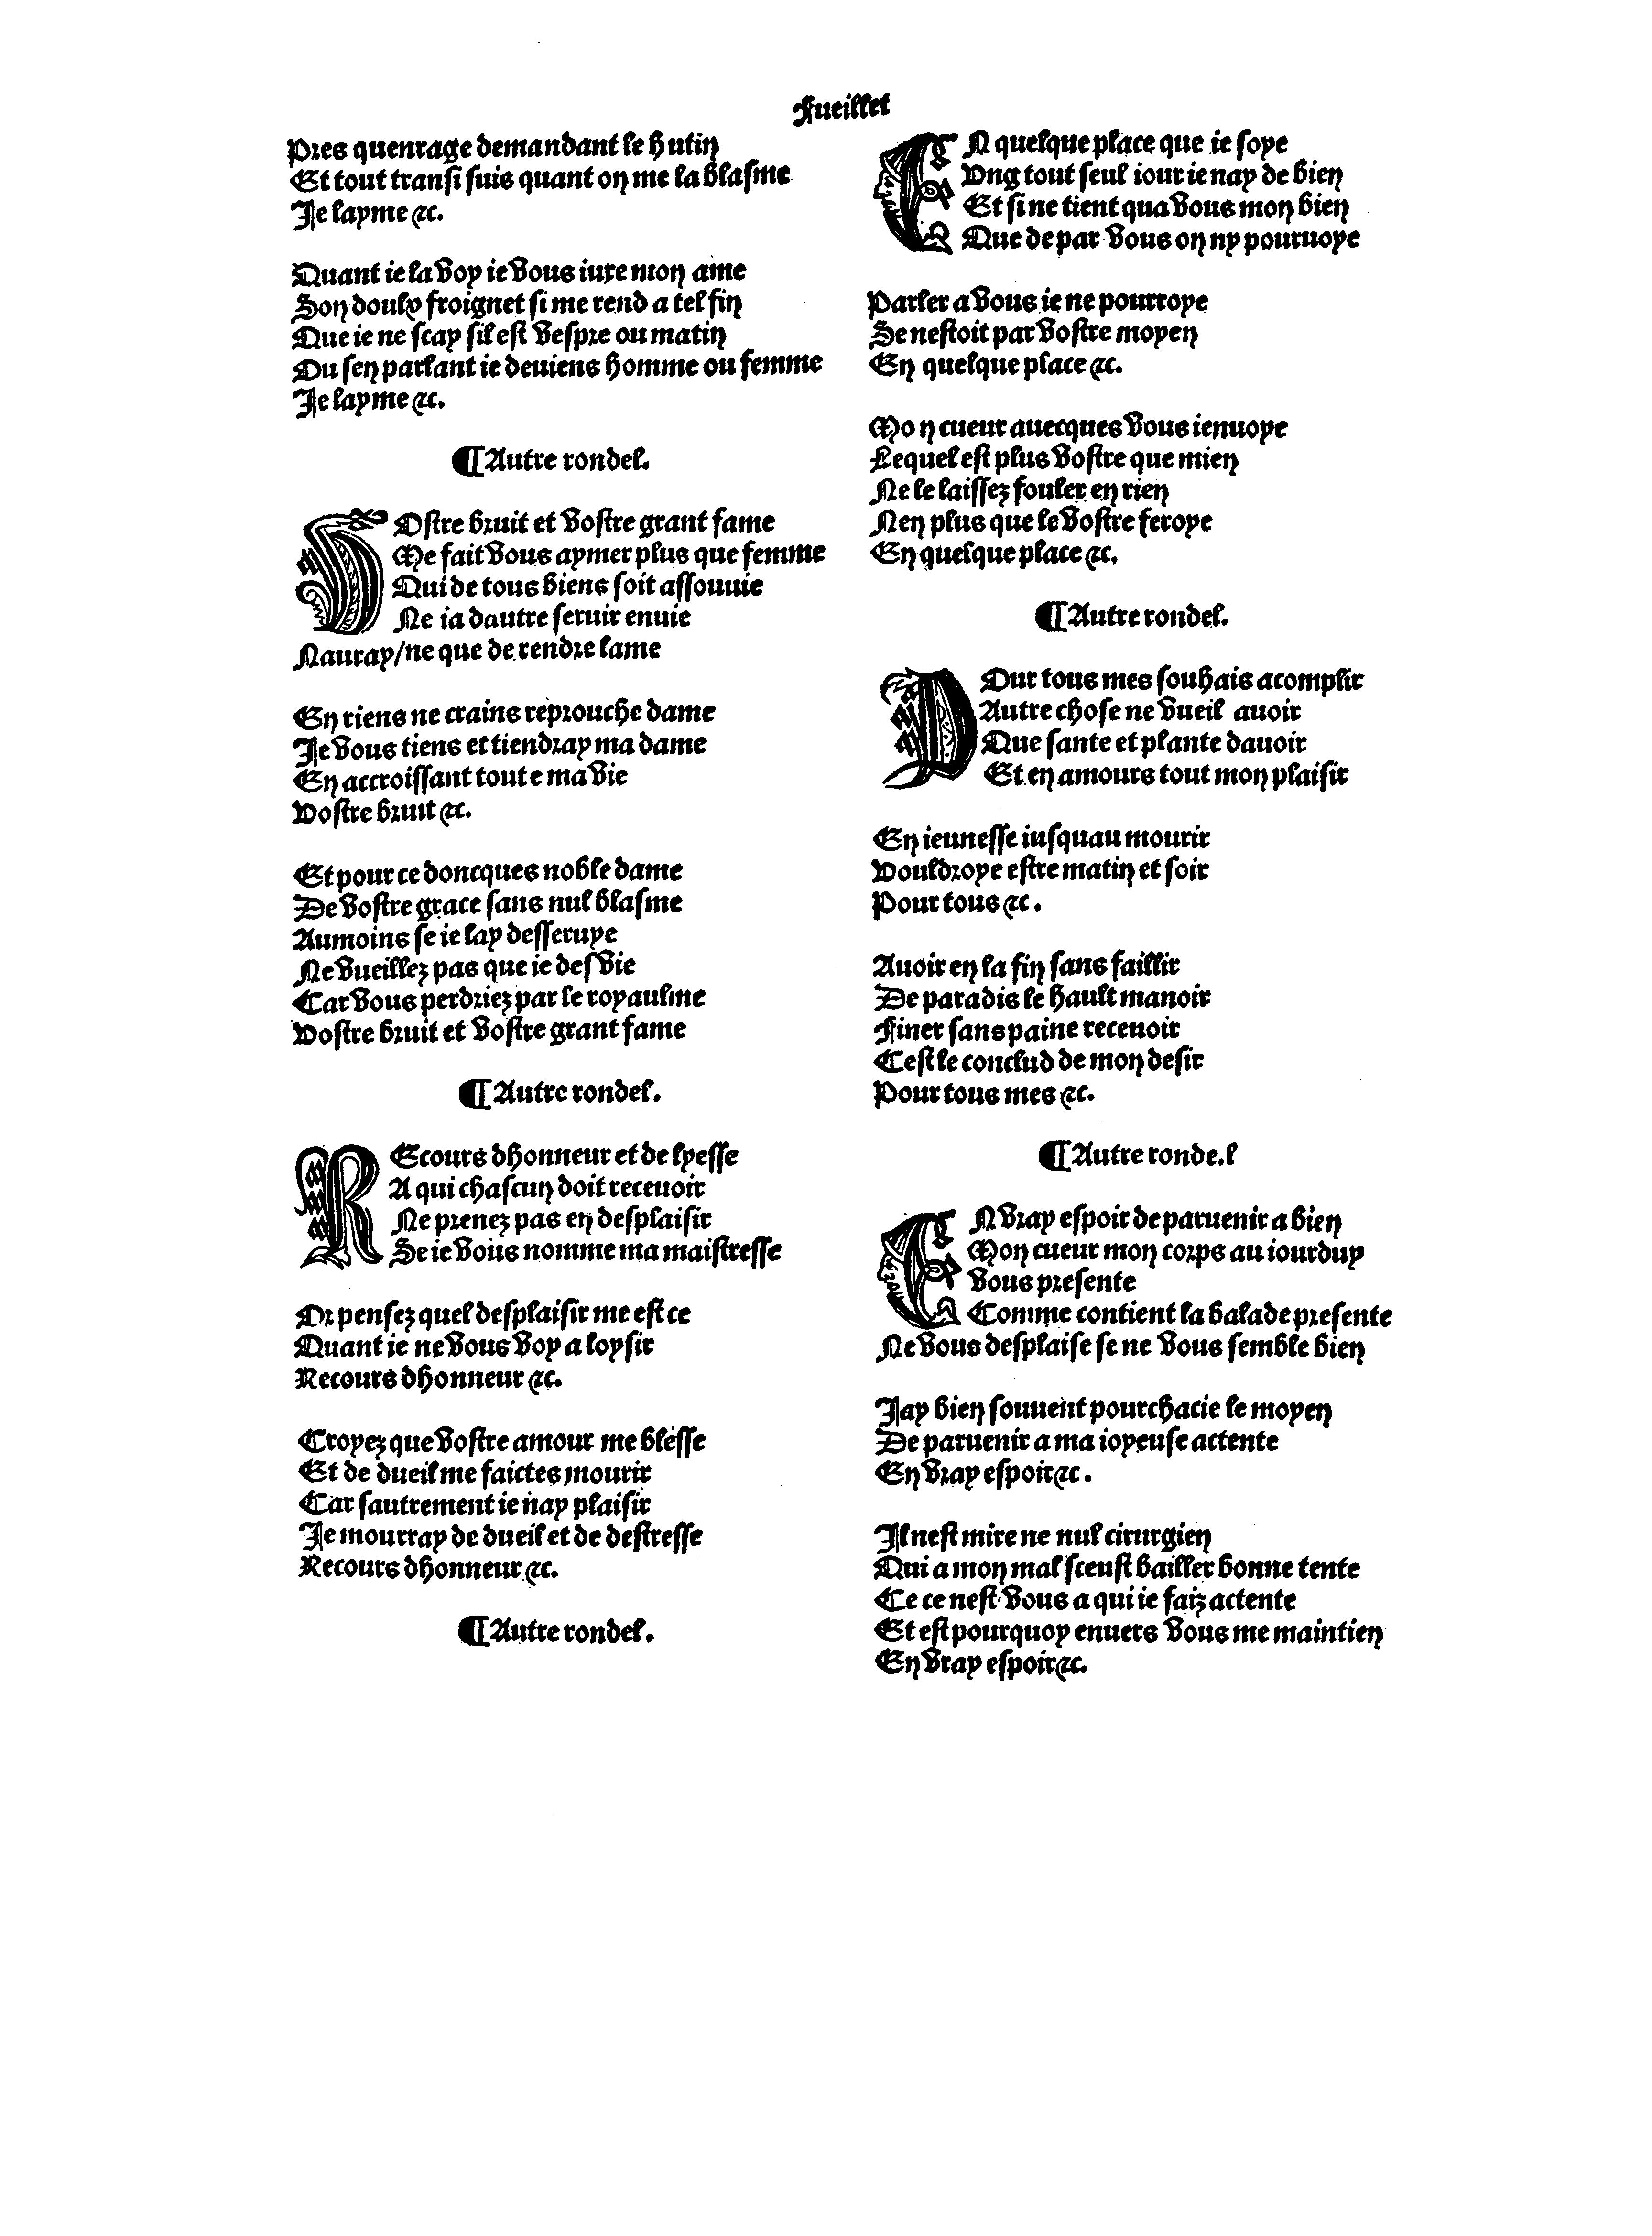 Fueillet
Pres quenrage demandant le hutin
Et tout transi suis quant on me la blasme
Je layme &c.
Quant ie la voy ie vous iure mon ame
Son doulx froignet si me rend a tel fin
Que ie ne scay sil est vespre ou matin
Ou sen parlant ie deuiens homme ou femme
Je layme &c.
¶Autre rondel.
VOstre bruit et vostre grant fame
Me fait vous aymer plus que femme
Qui de tous biens soit assouuie
Ne ia dautre seruir enuie
Nauray/ne que de rendre lame
En riens ne crains reprouche dame
Je vous tiens et tiendray ma dame
En accroissant toute ma vie
Vostre bruit &c.
Et pour ce doncques noble dame
De vostre grace sans nul blasme
Aumoins se ie lay desseruye
Ne vueillez pas que ie desvie
Car vous perdriez par le royaulme
Vostre bruit et vostre grant fame
¶Autre rondel.
REcours dhonneur et de lyesse
A qui chascun doit receuoir
Ne prenez pas en desplaisir
Se ie vous nomme ma maistresse
Or pensez quel desplaisir me est ce
Quant ie ne vous voy a loysir
Recours dhonneur &c.
Croyez que vostre amour me blesse
Et de dueil me faictes mourir
Car sautrement ie nay plaisir
Je mourray de dueil et de destresse
Recours dhonneur &c.
¶Autre rondel.
EN quelque place que ie soye
Ung tout seul iour ie nay de bien
Et si ne tient qua vous mon bien
Que de par vous on ny pouruoye
Parler a vous ie ne pourroye
Se nestoit par vostre moyen
En quelque place &c.
Mon cueur auecques vous ienuoye
Lequel est plus vostre que mien
Ne le laissez fouler en rien
Nen plus que le vostre feroye
En quelque place &c.
¶Autre rondel.
POur tous mes souhais acomplir
Autre chose ne vueil auoir
Que sante et plante dauoir
Et en amours tout mon plaisir
En ieunesse iusquau mourir
Vouldroye estre matin et soir
Pour tous &c.
Auoir en la fin sans faillir
De paradis le hault manoir
Finer sans paine receuoir
Cest le conclud de mon desir
Pour tous mes &c.
¶Autre ronde.l
EN vray espoir de paruenir a bien
Mon cueur mon corps au iourduy
vous presente
Comme contient la balade presente
Ne vous desplaise se ne vous semble bien
Jay bien souuent pourchacie le moyen
De paruenir a ma ioyeuse actente
En vray espoir &c.
Il nest mire ne nul cirurgien
Qui a mon mal sceust bailler bonne tente
Ce ce nest vous a qui ie faiz actente
Et est pourquoy enuers vous me maintien
En vray espoir &c.